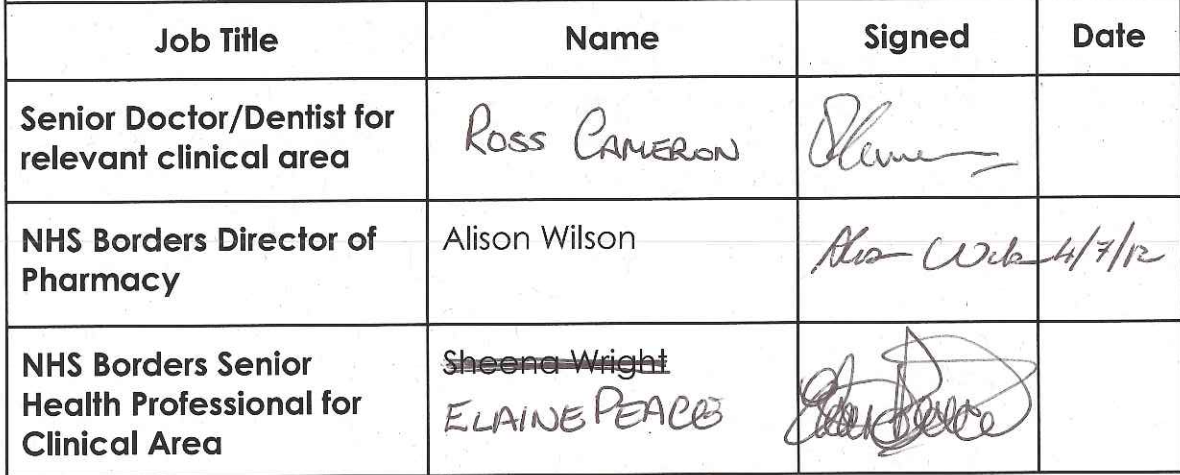 Job Title Name Signed Date
Senior Doctor/Dentist for
relevant clinical area
ROSS CAMERON
NHS Borders Director of
Pharmacy
Alison Wilson
4/7/12
NHS Borders Senior
Health Professional for
Clinical Area
Sheena Wright
ELAINE PEACE